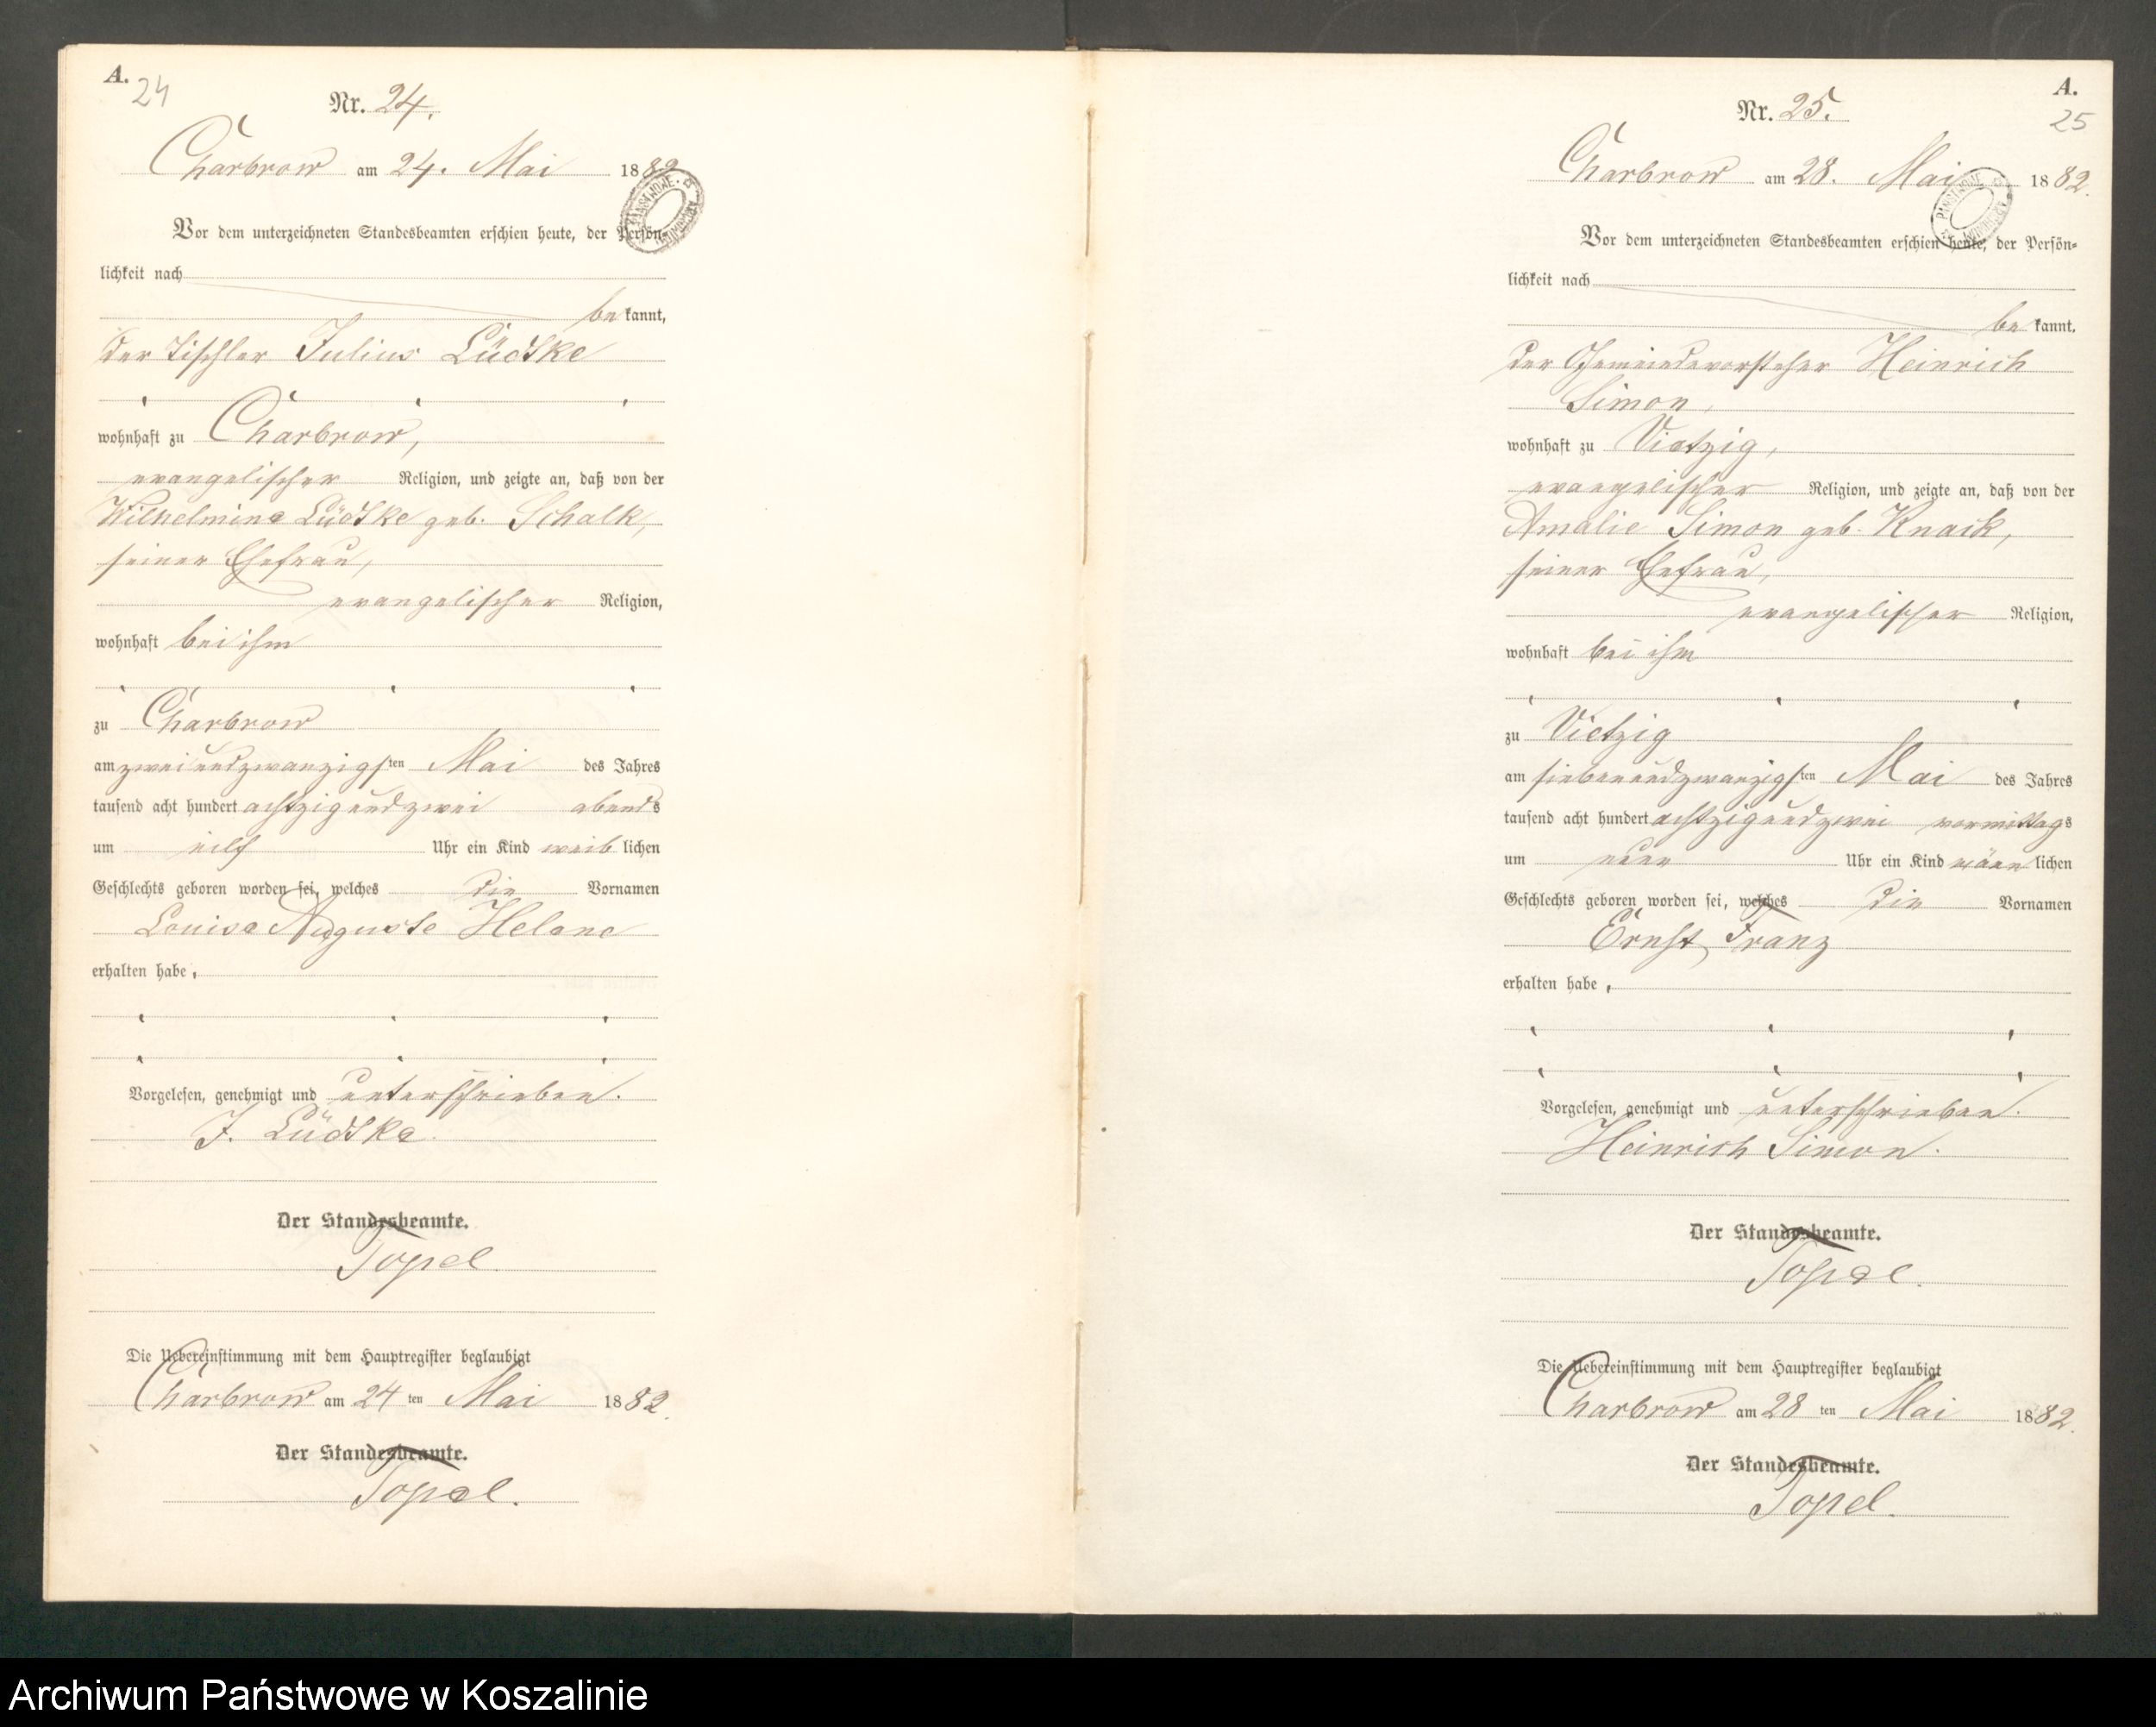 A.
24
Nr. 24.
Charbrow am 24. Mai 1882
Vor dem unterzeichneten Standesbeamten erschien heute, der Persön-
lichkeit nach
be kannt,
der Tischler Julius Lüdtke
wohnhaft zu Charbrow,
evangelischer Religion, und zeigte an, daß von der
Wilhelmine Lüdtke geb. Schalk,
seiner Ehefrau,
evangelischer Religion,
wohnhaft bei ihm
zu Charbrow
am zweiundzwanzigsten Mai des Jahres
tausend acht hundert achtzig und zwei abends
um eilf Uhr ein Kind weiblichen
Geschlechts geboren worden sei, welches die Vornamen
Louise Auguste Helene
erhalten habe,
Vorgelesen, genehmigt und unterschrieben.
J. Lüdtke.
Der Standesbeamte.
Topel
Die Uebereinstimmung mit dem Hauptregister beglaubigt
Charbrow am 24 ten Mai 1882.
Der Standesbeamte.
Topel.
A.
25
Nr. 25.
Charbrow am 28. Mai 1882.
Vor dem unterzeichneten Standesbeamten erschien heute, der Persön-
lichkeit nach
be kannt,
der Gemeindevorsteher Heinrich
Simon,
wohnhaft zu Vietzig,
evangelischer Religion, und zeigte an, daß von der
Amalie Simon geb. Knack,
seiner Ehefrau,
evangelischer Religion,
wohnhaft bei ihm
zu Vietzig
am siebenundzwanzigsten Mai des Jahres
tausend acht hundert achtzig und zwei vormittags
um neun Uhr ein Kind männlichen
Geschlechts geboren worden sei, welches die Vornamen
Ernst Franz
erhalten habe,
Vorgelesen, genehmigt und unterschrieben.
Heinrich Simon.
Der Standesbeamte.
Topel.
Die Uebereinstimmung mit dem Hauptregister beglaubigt
Charbrow am 28 ten Mai 1882.
Der Standesbeamte.
Topel.
Archiwum Państwowe w Koszalinie